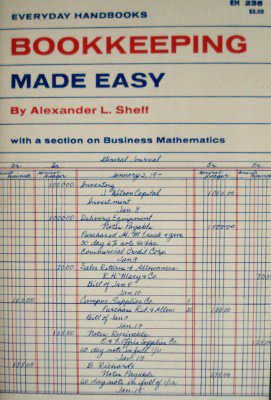 EVERYDAY HANDBOOKS
EH 238
$3.50
BOOKKEEPING
MADE EASY
By Alexander L. Sheff
with a section on Business Mathematics
General Journal
Dr. Dr. Cr. Cr.
General Ledger January 2, 19- General Ledger
1000.00 Inventory
J. Wilson Capital 1000.00
Investment
Jan. 8
1000.00 Delivery Equipment
Notes Payable 1000.00
Purchased G. M. Truck & gave
30 day 6% note to the
Commercial Credit Corp.
Jan. 9
70.00 Sales Returns & Allowances
R. H. Macy & Co.
Bill of Jan. 5
Jan 10
Campus Supplies Co.
Purchase Ret & Allow
Bill of Jan 9
Jan. 13
125.00 Notes Receivable
Office Supplies Co.
60 day note in full
B. Richards
Notes Payable
60 day note in full of 1/12